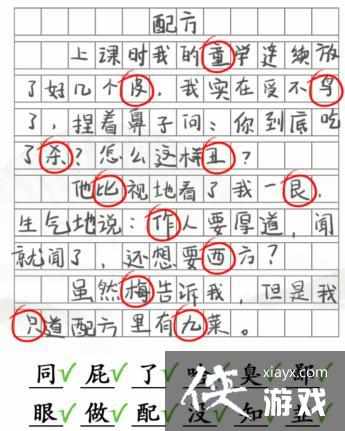 配方
上课时我的童学连续放
了好几个皮，我实在受不鸟
了，捏着鼻子问：你到底吃
了杀？怎么这样丑？
他比视地看了我一艮，
生气地说：作人要厚道，闻
就闻了，还想要西方？
虽然梅告诉我，但是我
只道配方里有九菜。
同 屁 了 啥 臭 鄙
眼 做 配 没 知 韭
侠游戏
xiayx.com